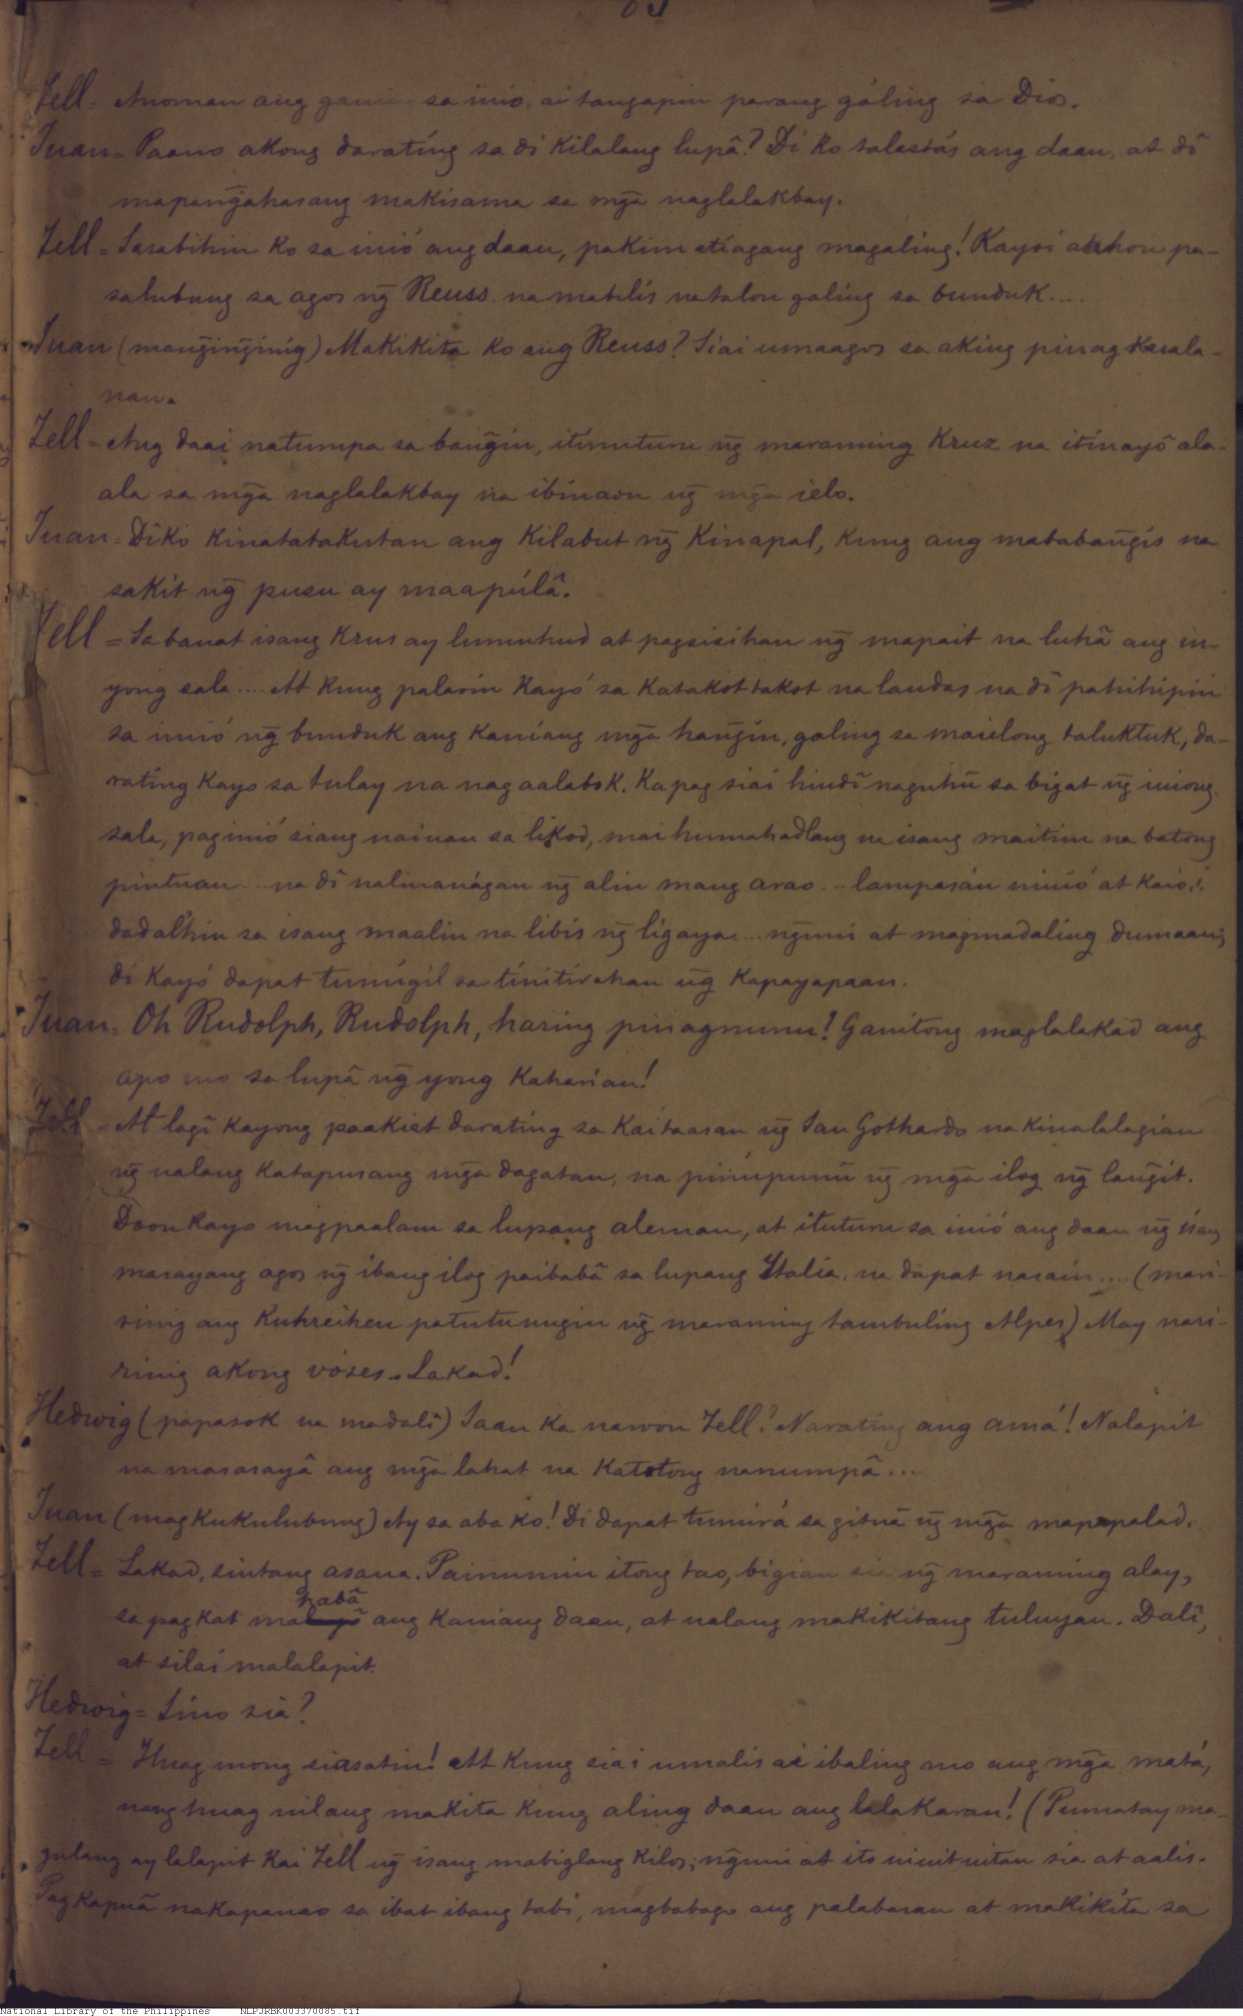 Tell = Anoman ang gawin sa inio, ai tangapin parang gáling sa Dios.
Juan = Paano akong darating sa di kilalang lupâ? Di ko talastás ang daan, at dî
mapang̃ahasang makisama sa mg̃a naglalakbay.
Tell = Sasabihin ko sa inió ang daan, pakim atiagang magaling! Kayoi aahon pa-
salubung sa agos ng̃ Reuss na matulis natalon galing sa bunduk....
Juan (mang̃ing̃inig) Makikita ko ang Reuss? Siai umaagos sa aking pinagkasala-
nan.
Tell = Ang daai natumpa sa bang̃in, itinuturu ng̃ maraming Kruz na itinayô ala-
ala sa mg̃a naglalakbay na ibinaon ng̃ mg̃a ielo.
Juan = Diko kinatatakutan ang kilabut ng̃ Kinapal, kung ang matabang̃is na
sakit ng̃ pusu ay maapúlâ.
Tell = Sa banat isang Krus ay lumuhud at pagsisihan ng̃ mapait na luhâ ang in-
yong sala.... At kung palarin kayó sa katakottakot na landas na dî pahihipin
sa inió ng̃ bunduk ang kaniang mg̃a hang̃in, galing sa maielong taluktuk, da-
rating kayo sa tulay na nagaalabok. Kapag siai hindî naguhû sa bigat ng̃ iniong
sala, paginió siang naiuan sa likod, mai humahadlang na isang maitim na batong
pintuan... na dî naliuanágan ng̃ alin mang arao... lampasán ninió at kaio,i
dadalhin sa isang maaliu na libis ng̃ ligaya.... ng̃uni at magmadaling dumaan,
di kayó dapat tumigil sa tinitirahan ng̃ kapayapaan.
Juan = Oh Rudolph, Rudolph, haring pinagnunu! Ganitong maglalakad ang
apo mo sa lupâ ng̃ yong Kaharian!
Tell = At lagî kayong paakiat darating sa Kaitaasan ng̃ San Gothardo na kinalalagian
ng̃ ualang katapusang mg̃a dagatan, na pinupunû ng̃ mg̃a ilog ng̃ lang̃it.
Doon kayo magpaalam sa lupang aleman, at ituturu sa inió ang daan ng̃ isang
masayang agos ng̃ ibang ilog paibabâ sa lupang Italia, na dapat nasain.... (mari-
rinig ang Kuhreihen patutunugin ng̃ maraming tambuling Alpes) May nari-
rinig akong vóses. Lakad!
Hedwig (papasok na madalî) Saan ka naroon Tell? Narating ang amá! Nalapit
na masasayâ ang mg̃a lahat na katotong nanumpâ...
Juan (magkukulubung) Ay sa aba ko! Di dapat tumirá sa gitnâ ng̃ mg̃a mapapalad.
Tell = Lakad, sintang asaua. Painumin itong tao, bigian sia ng̃ maraming alay,
habâ
sa pagkat malayô ang kaniang daan, at ualang makikitang tuluyan. Dalî,
at silai malalapit.
Hedwig = Sino siá?
Tell = Huag mong siasatin! At kung siai umalis ai ibaling mo ang mg̃a matá,
nang huag nilang makita kung aling daan ang lalakaran! (Pumatay ma-
gulang ay lalapit kai Tell ng̃ isang mabiglang kilos; ng̃uni at ito sia at aalis.
Pagkapuâ nakapanao sa ibat ibang tabi, magbabago ang palabasan at makikita sa
National Library of the Philippines NLPJRBK003370085.tif